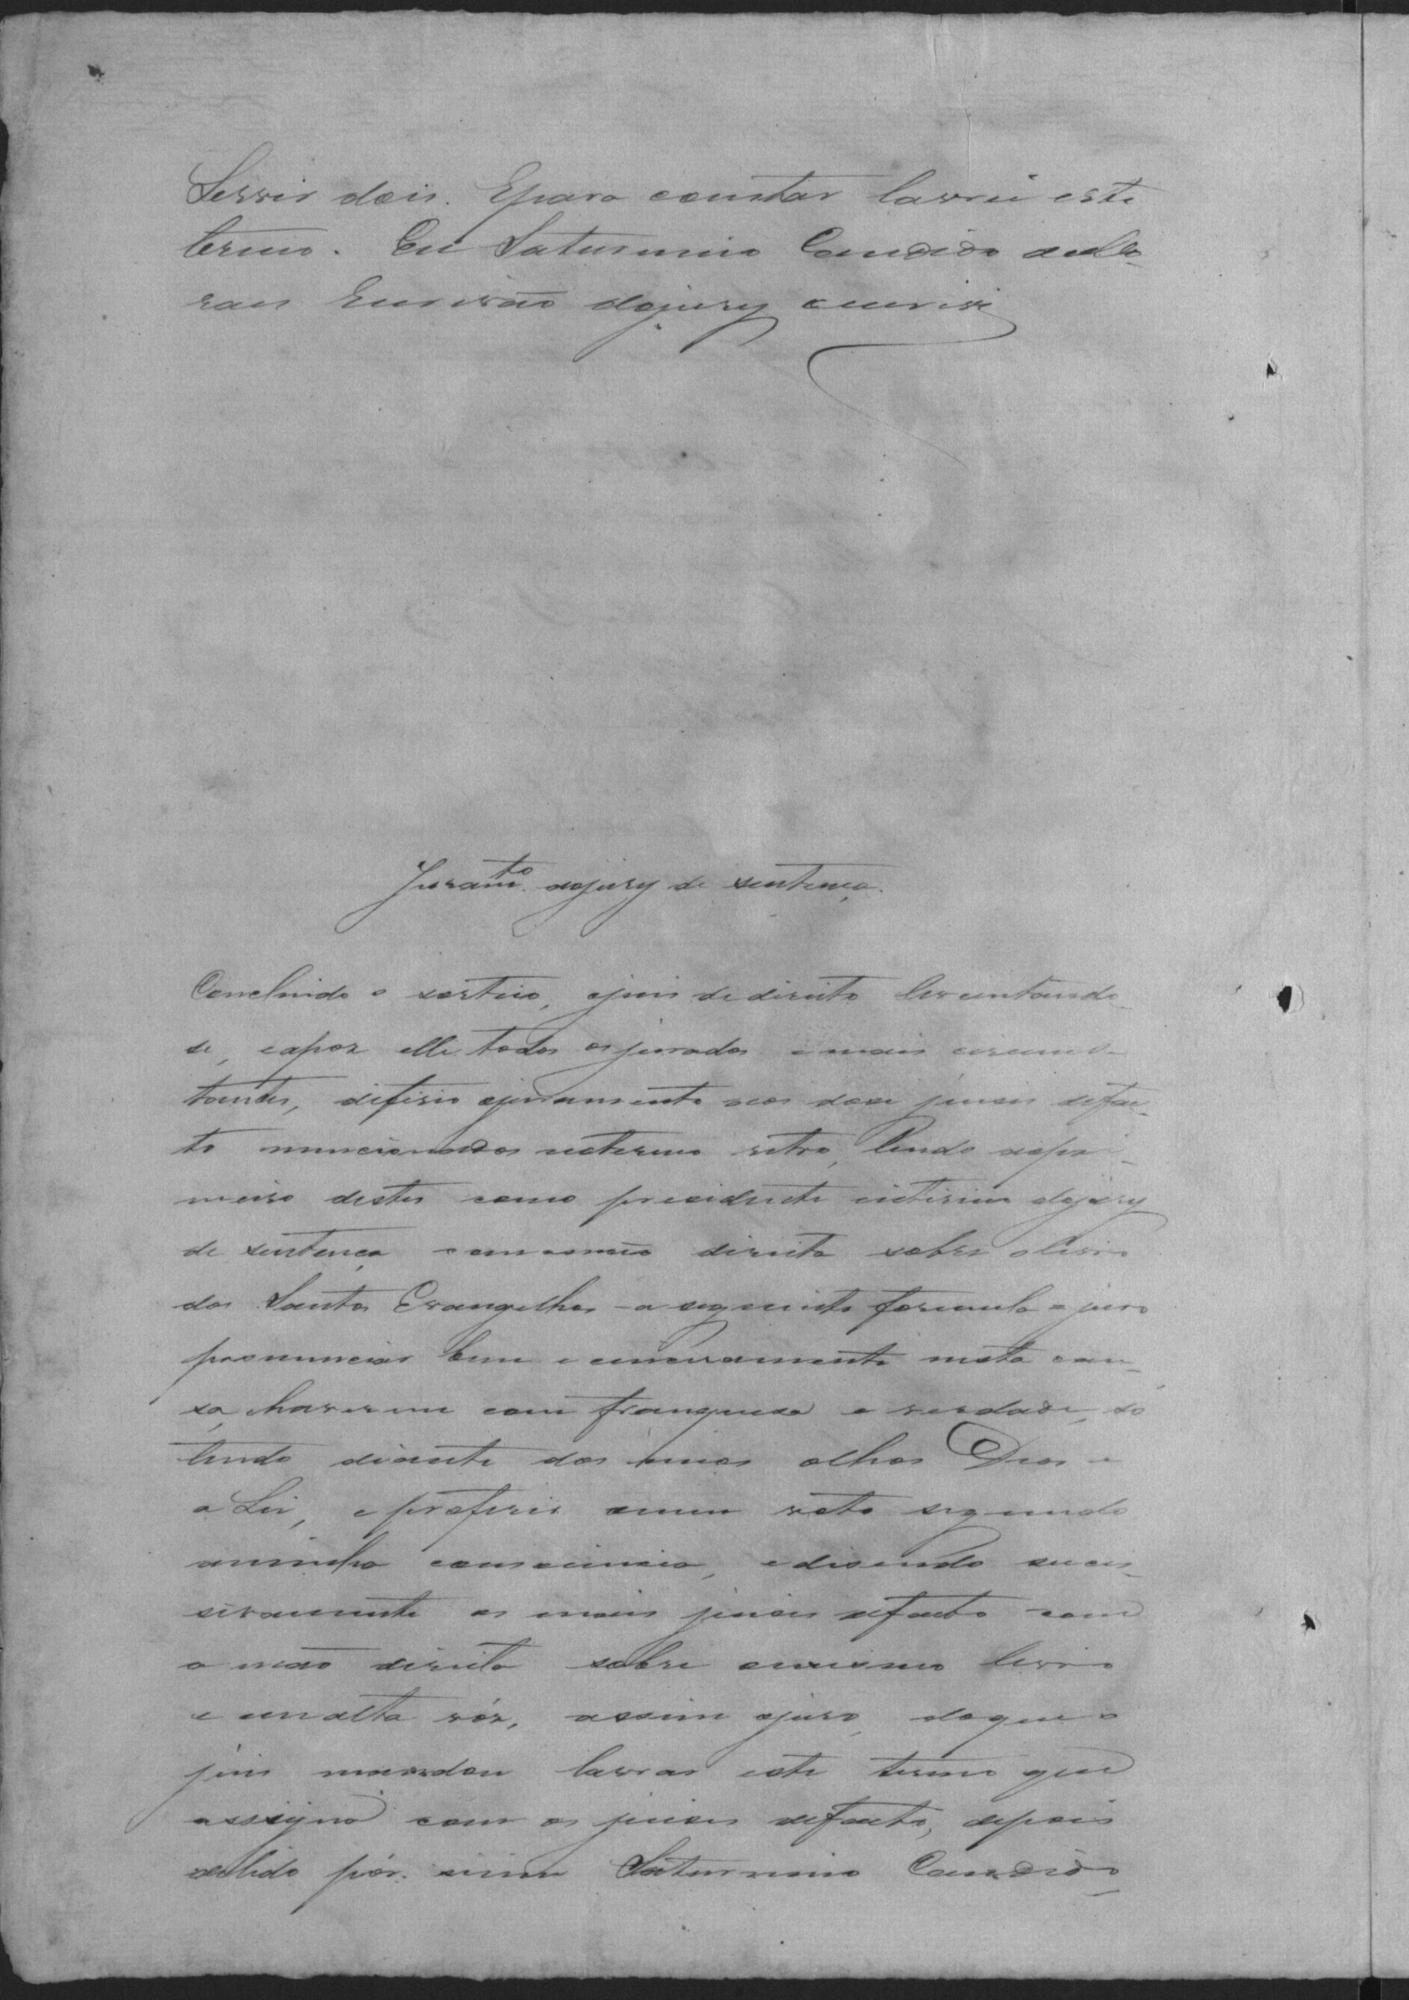 Servir dois. Epara constar lavrei este
termo. Eu Saturnino Candido
Escrivão dojury escrevi
Juramto. dojury de sentença.
Concluido o sorteio, ojuis dedireito levantando
se, eapoz elle todos osjurados e mais circuns-
tantes, deferio ojuramento aos dose juises defac-
to mencionados notermo retro, lendo opri-
meiro destes como presidente interino dojury
de sentença comamão direita sobre olivro
dos Santos Evangelhos a seguinte formula = juro
pronunciar bem e sinceramente nesta cau-
sa, haverme com franquesa e verdade, so
tendo diante dos meus olhos Deos e
a Lei, e proferir omeu voto segundo
aminha consciencia, edisendo suces-
sivamente os mais juises defacto com
a mão direita sobre omesmo livro
e emalta vóz, assim ojuro, doque o
juis mandou lavrar este termo que
assigno com os juises defacto, depois
delido pór mim Saturnino Candido